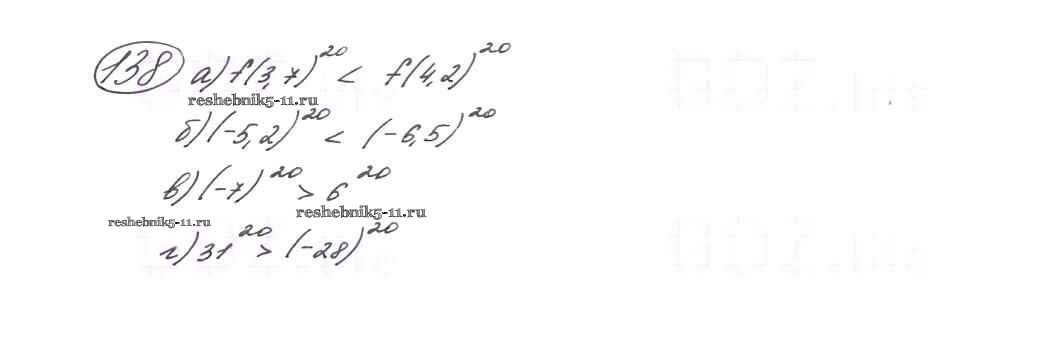 138 а) f(3,7)^20 < f(4,2)^20
reshebnik5-11.ru
б) (-5,2)^20 < (-6,5)^20
в) (-7)^20 > 6^20
reshebnik5-11.ru
reshebnik5-11.ru
г) 31^20 > (-28)^20